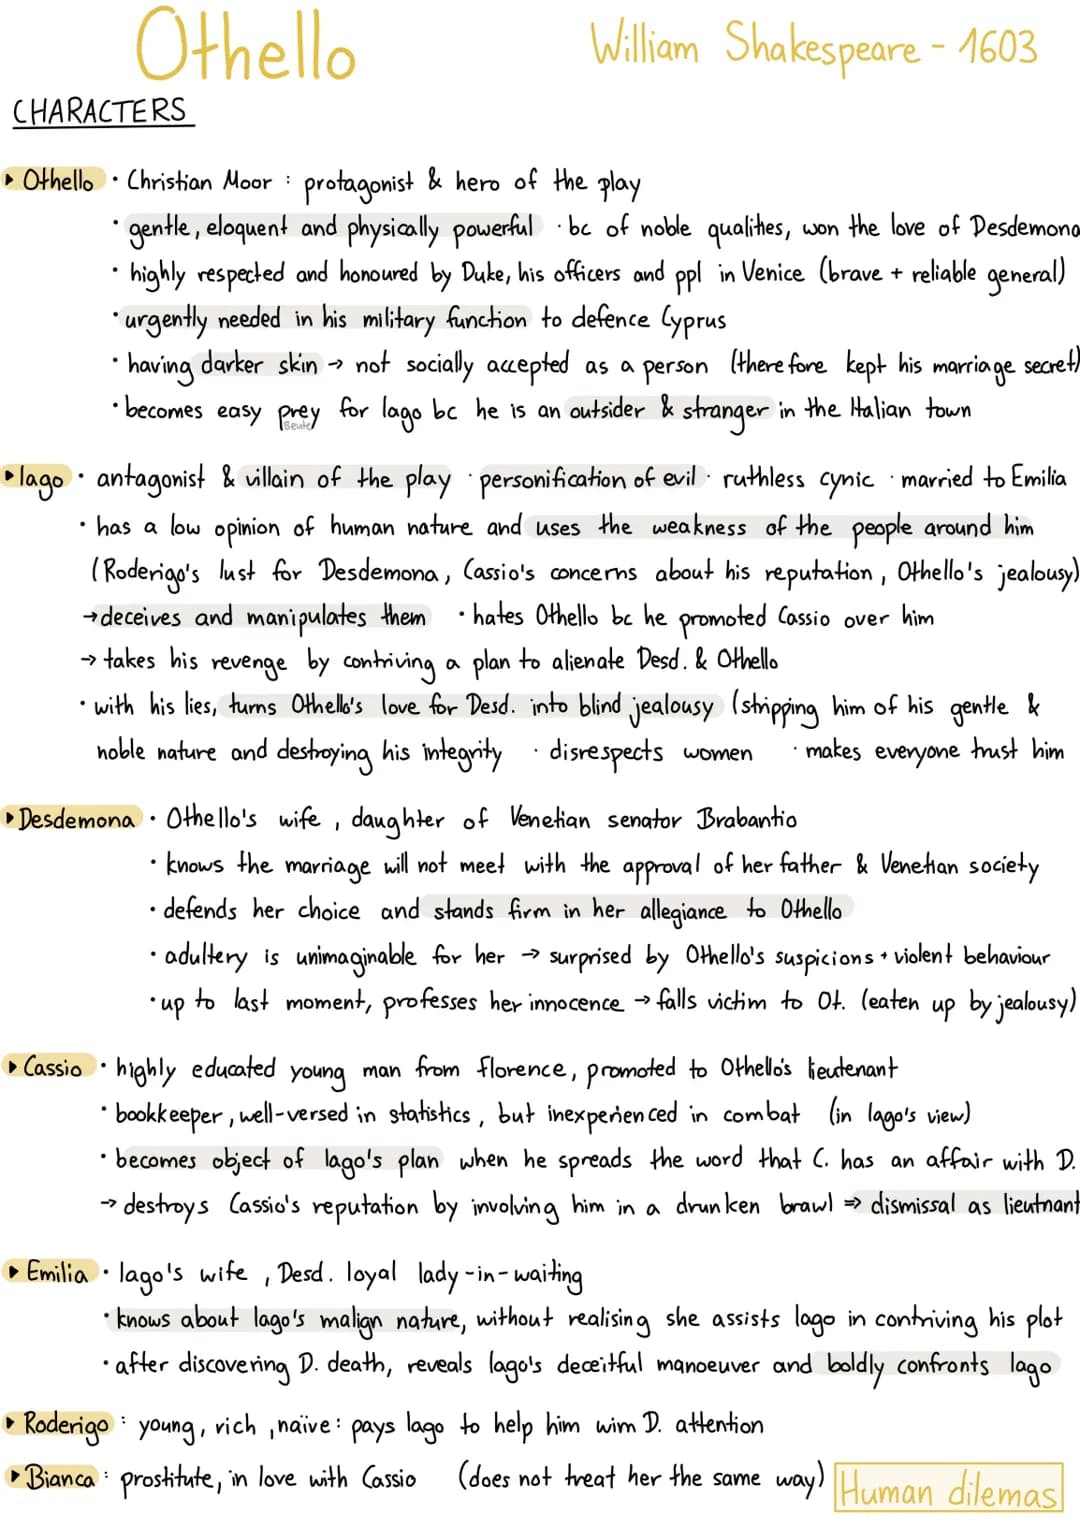 Othello William Shakespeare - 1603
CHARACTERS
▸ Othello • Christian Moor : protagonist & hero of the play
• gentle, eloquent and physically powerful • bc of noble qualities, won the love of Desdemona
• highly respected and honoured by Duke, his officers and ppl in Venice (brave + reliable general)
• urgently needed in his military function to defence Cyprus
• having darker skin → not socially accepted as a person (therefore kept his marriage secret)
• becomes easy prey for Iago bc he is an outsider & stranger in the Italian town
(Beute)
▸ Iago • antagonist & villain of the play • personification of evil • ruthless cynic • married to Emilia
• has a low opinion of human nature and uses the weakness of the people around him
(Roderigo's lust for Desdemona, Cassio's concerns about his reputation, Othello's jealousy)
→ deceives and manipulates them • hates Othello bc he promoted Cassio over him
→ takes his revenge by contriving a plan to alienate Desd. & Othello
• with his lies, turns Othello's love for Desd. into blind jealousy (stripping him of his gentle &
noble nature and destroying his integrity • disrespects women • makes everyone trust him
▸ Desdemona • Othello's wife, daughter of Venetian senator Brabantio
• knows the marriage will not meet with the approval of her father & Venetian society
• defends her choice and stands firm in her allegiance to Othello
• adultery is unimaginable for her → surprised by Othello's suspicions + violent behaviour
• up to last moment, professes her innocence → falls victim to Ot. (eaten up by jealousy)
▸ Cassio • highly educated young man from Florence, promoted to Othello's lieutenant
• bookkeeper, well-versed in statistics, but inexperienced in combat (in Iago's view)
• becomes object of Iago's plan when he spreads the word that C. has an affair with D.
→ destroys Cassio's reputation by involving him in a drunken brawl ⇒ dismissal as lieutnant
▸ Emilia • Iago's wife, Desd. loyal lady-in-waiting
• knows about Iago's malign nature, without realising she assists Iago in contriving his plot
• after discovering D. death, reveals Iago's deceitful manoeuver and boldly confronts Iago
▸ Roderigo : young, rich, naïve : pays Iago to help him wim D. attention
▸ Bianca : prostitute, in love with Cassio (does not treat her the same way) Human dilemas